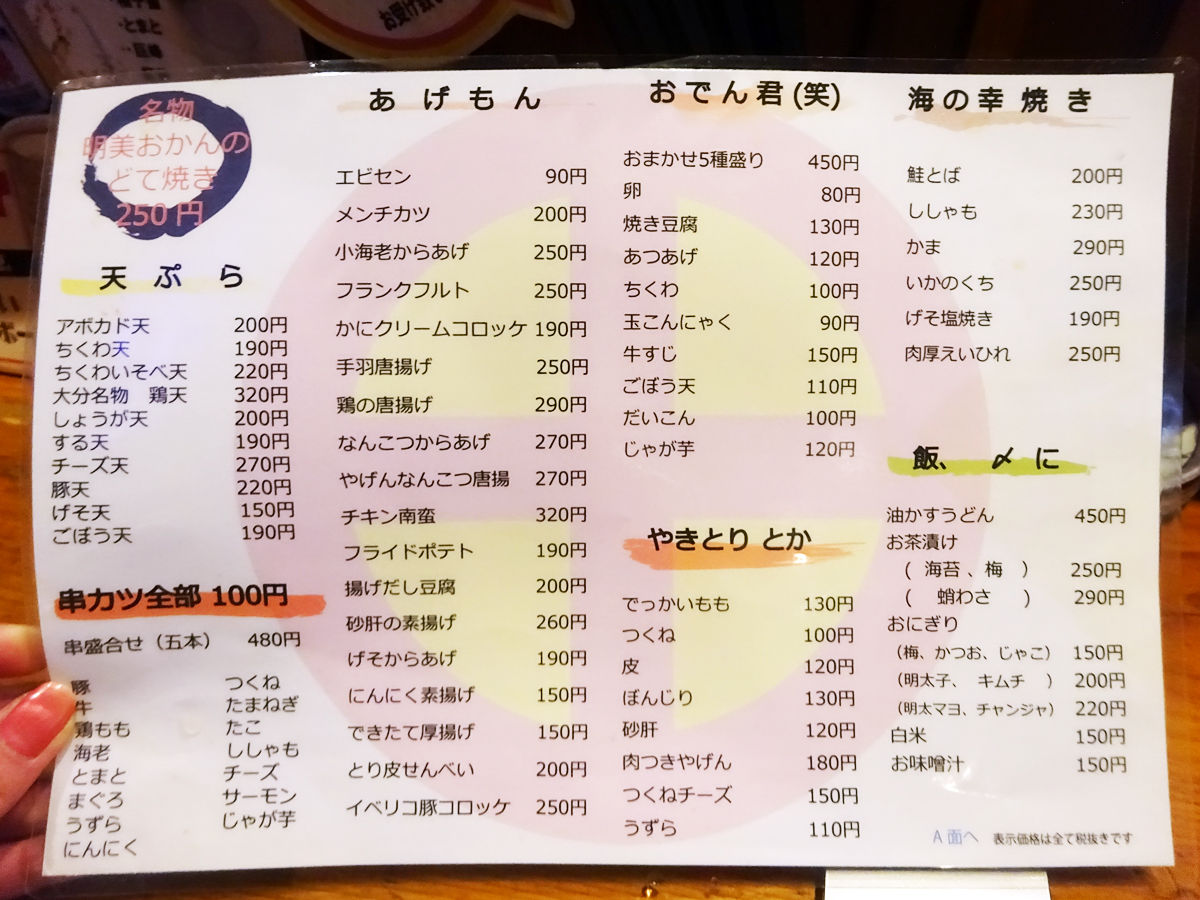 お受け致し
とまと
名物
明美おかんの
どて焼き
250円
天ぷら
アボカド天 200円
ちくわ天 190円
ちくわいそべ天 220円
大分名物 鶏天 320円
しょうが天 200円
する天 190円
チーズ天 270円
豚天 220円
げそ天 150円
ごぼう天 190円
串カツ全部 100円
串盛合せ（五本） 480円
豚 つくね
牛 たまねぎ
鶏もも たこ
海老 ししゃも
とまと チーズ
まぐろ サーモン
うずら じゃが芋
にんにく
あげもん
エビセン 90円
メンチカツ 200円
小海老からあげ 250円
フランクフルト 250円
かにクリームコロッケ 190円
手羽唐揚げ 250円
鶏の唐揚げ 290円
なんこつからあげ 270円
やげんなんこつ唐揚 270円
チキン南蛮 320円
フライドポテト 190円
揚げだし豆腐 200円
砂肝の素揚げ 260円
げそからあげ 190円
にんにく素揚げ 150円
できたて厚揚げ 150円
とり皮せんべい 200円
イベリコ豚コロッケ 250円
おでん君(笑)
おまかせ5種盛り 450円
卵 80円
焼き豆腐 130円
あつあげ 120円
ちくわ 100円
玉こんにゃく 90円
牛すじ 150円
ごぼう天 110円
だいこん 100円
じゃが芋 120円
やきとりとか
でっかいもも 130円
つくね 100円
皮 120円
ぼんじり 130円
砂肝 120円
肉つきやげん 180円
つくねチーズ 150円
うずら 110円
海の幸焼き
鮭とば 200円
ししゃも 230円
かま 290円
いかのくち 250円
げそ塩焼き 190円
肉厚えいひれ 250円
飯、〆に
油かすうどん 450円
お茶漬け
( 海苔、梅 ) 250円
( 蛸わさ ) 290円
おにぎり
（梅、かつお、じゃこ） 150円
（明太子、 キムチ ） 200円
（明太マヨ、チャンジャ） 220円
白米 150円
お味噌汁 150円
A面へ 表示価格は全て税抜きです